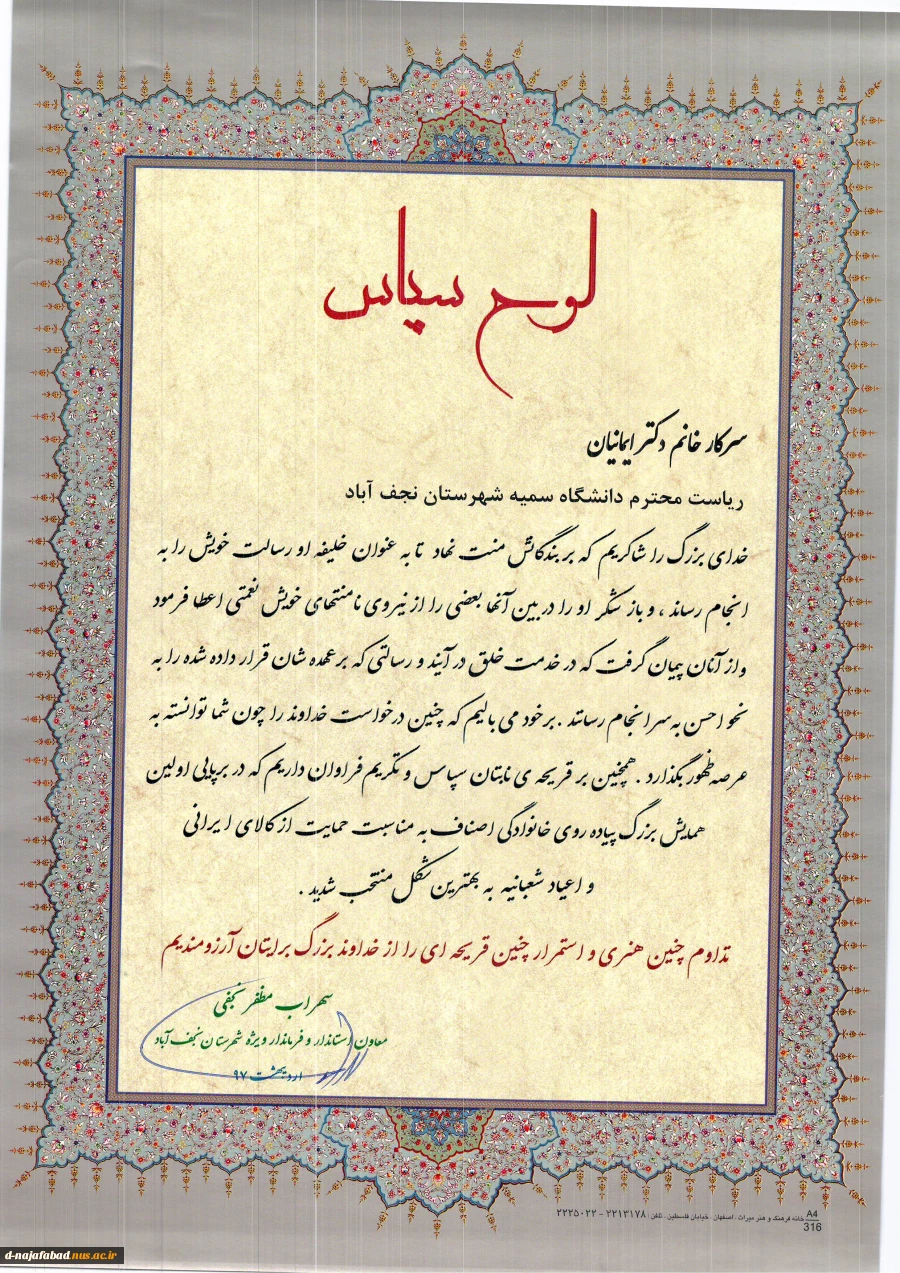 لوح سپاس
سرکار خانم دکتر ایمانیان
ریاست محترم دانشگاه سمیه شهرستان نجف آباد
خدای بزرگ را شاکریم که بر بندگانش منت نهاد تا به عنوان خلیفه او رسالت خویش را به
انجام رساند ، و باز شکر او را در بین آنها بعضی را از نیروی نامنتهای خویش نعمتی اعطا فرمود
و از آنان پیمان گرفت که در خدمت خلق در آیند و رسالتی که بر عهده شان قرار داده شده را به
نحو احسن به سر انجام رسانند . بر خود می بالیم که چنین درخواست خداوند را چون شما توانسته به
عرصه ظهور بگذارد . همچنین بر قریحه ی نابتان سپاس و تکریم فراوان داریم که در برپایی اولین
همایش بزرگ پیاده روی خانوادگی اصناف به مناسبت حمایت از کالای ایرانی
و اعیاد شعبانیه به بهترین شکل منتخب شدید .
تداوم چنین هنری و استمرار چنین قریحه ای را از خداوند بزرگ برایتان آرزومندیم
سهراب مظفر نجفی
معاون استاندار و فرماندار ویژه شهرستان نجف آباد
اردیبهشت ۹۷
A4
316
خانه فرهنگ و هنر میراث ، اصفهان ، خیابان فلسطین ، تلفن : ۲۲۱۳۱۷۸ - ۲۲۲۵۰۲۲
d-najafabad.nus.ac.ir